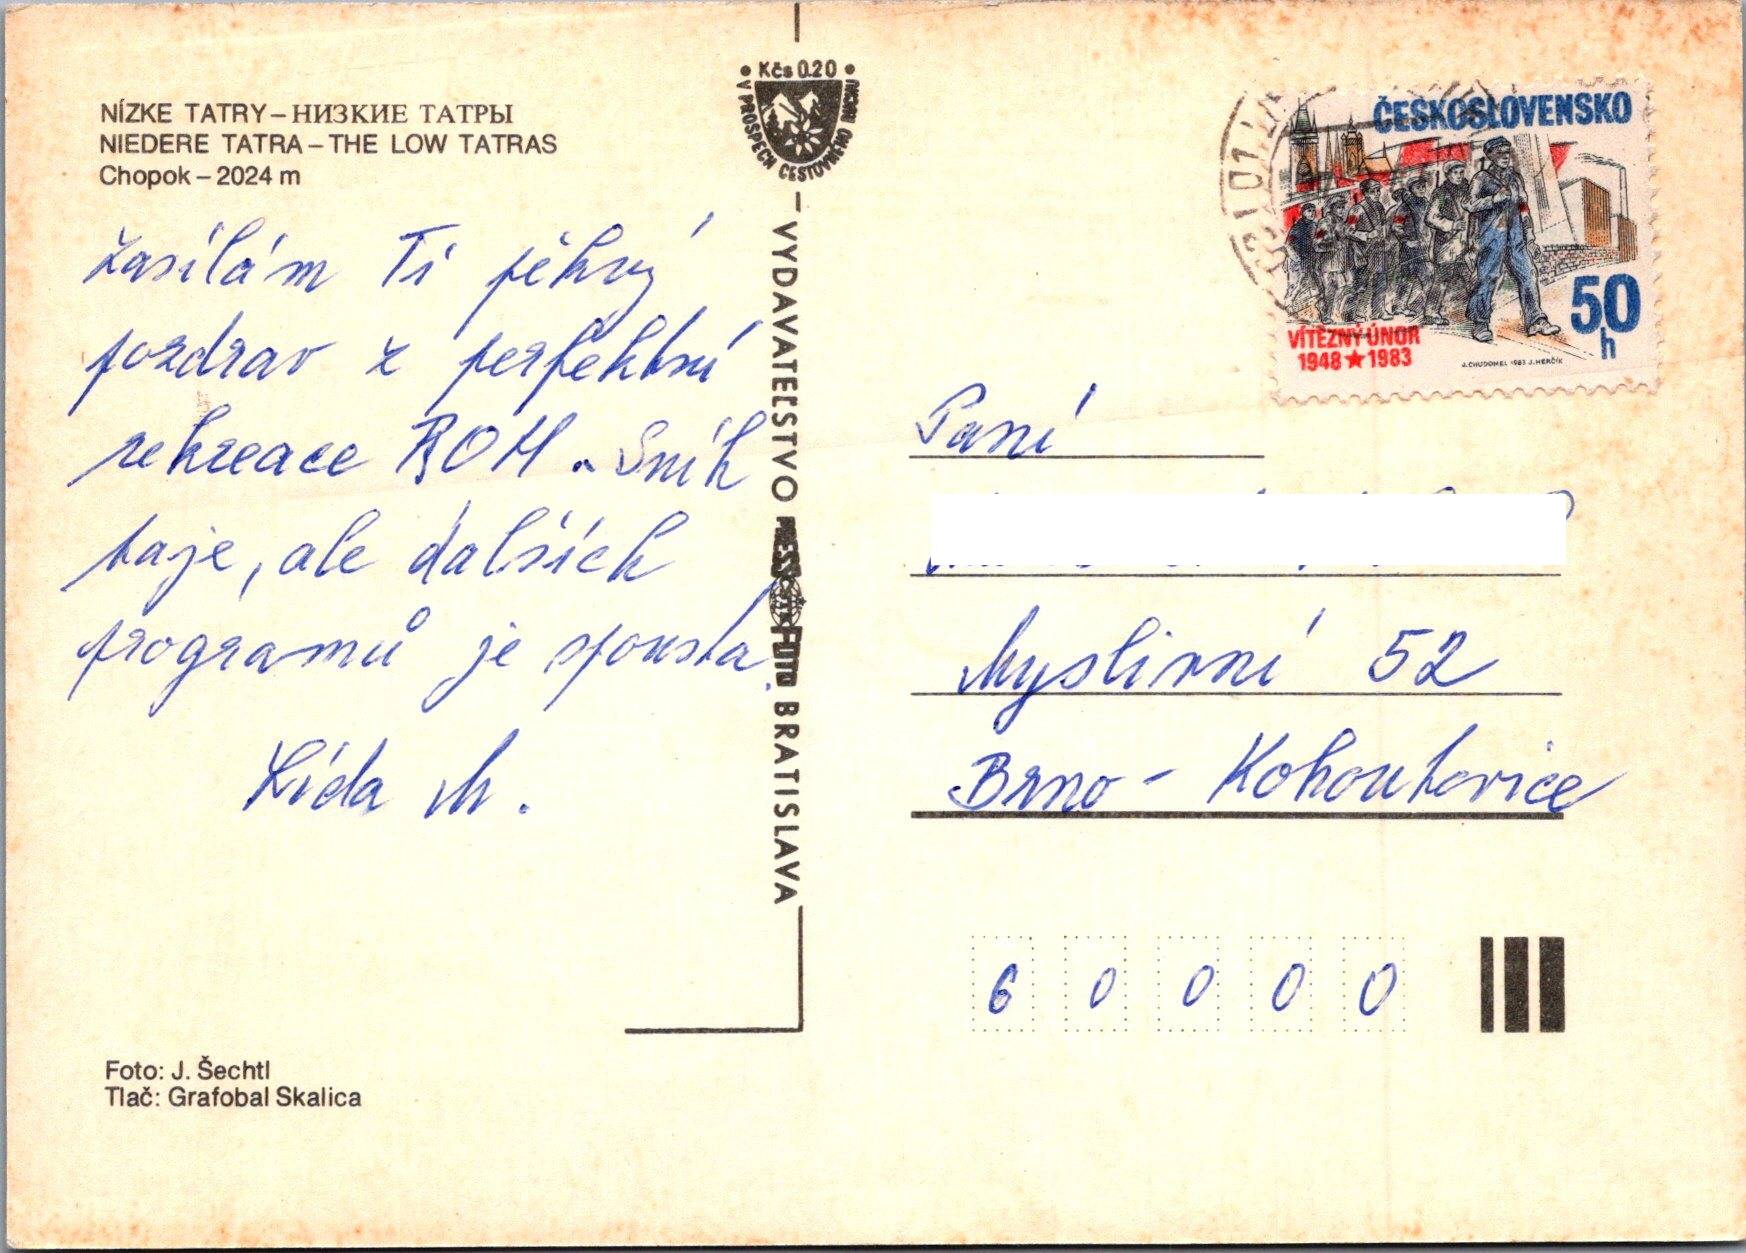 NÍZKE TATRY – НИЗКИЕ ТАТРЫ
NIEDERE TATRA – THE LOW TATRAS
Chopok – 2024 m
Zasílám Ti pěkný
pozdrav z perfektní
rekreace ROH. Sníh
taje, ale dalších
programů je spousta.
Lída M.
Kčs 0.20
V PROSPECH CESTOVNÉHO RUCHU
VYDAVATEĽSTVO PRESSFOTO BRATISLAVA
ČESKOSLOVENSKO
50 h
VÍTĚZNÝ ÚNOR
1948 ★ 1983
J. CHUDOMEL 1983 J. HERČÍK
Paní
Myslivní 52
Brno - Kohoutovice
6 0 0 0 0
Foto: J. Šechtl
Tlač: Grafobal Skalica